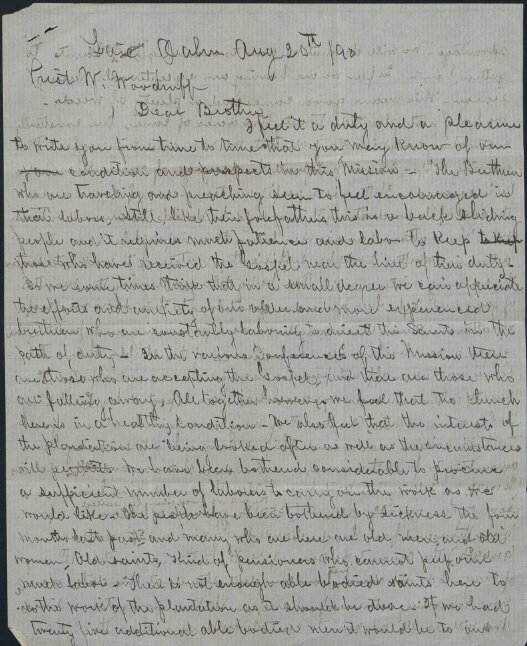 Laie Oahu Aug 20th /90
Prest W. Woodruff
Dear Brother
I feel it a duty and a pleasure
to write you from time to time that you may know of our
condition and prospects in this Mission – The Brethren
who are traveling and preaching seem to feel encouraged in
their labors, still, like their forefathers this is a back sliding
people and it requires much patience and labor to keep
those who have received the Gospel near the line of their duty –
we some times think that in a small degree we can appreciate
the efforts and anxiety of our older and more experienced
brethren who are constantly laboring to direct the Saints in the
path of duty – In the various Conferences of this Mission there
are those who are accepting the Gospel, and there are those who
are falling away, All together however we feel that the Church
here is in a healthy condition – We also feel that the interests of
the plandtation are being looked after as well as the circumstances
will we have been bothered considerable to procure
a sufficient number of laborers to carry on the work as we
would like. The people have been bothered by sickness the four
months last past and many who are here are old men and old
women, Old saints, kind of pensioners who cannot perform
much labor – There is not enough able bodied saints here to
do the work of the plandation as it should be done – If we had
twenty five additional able bodied men it would be to our